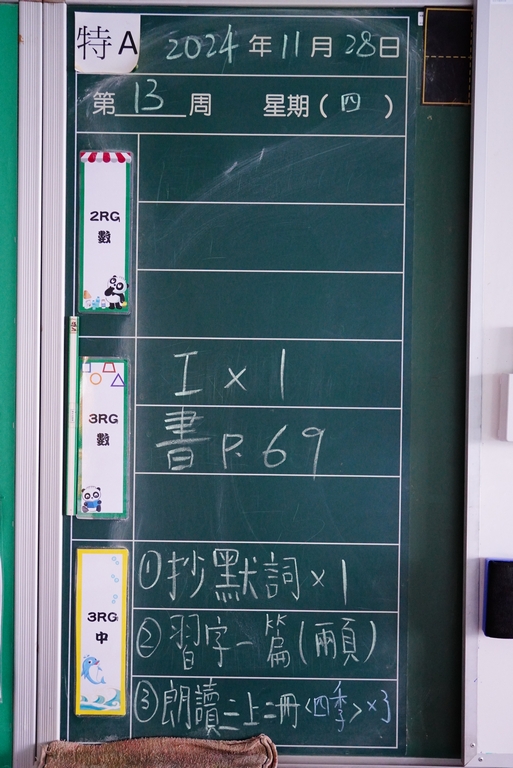 特A 2024年11月28日
第13周 星期(四)
2RG
數
3RG
數
工×1
書P.69
3RG
中
①抄默詞×1
②習字一篇(兩頁)
③朗讀二上二冊<四季>×3